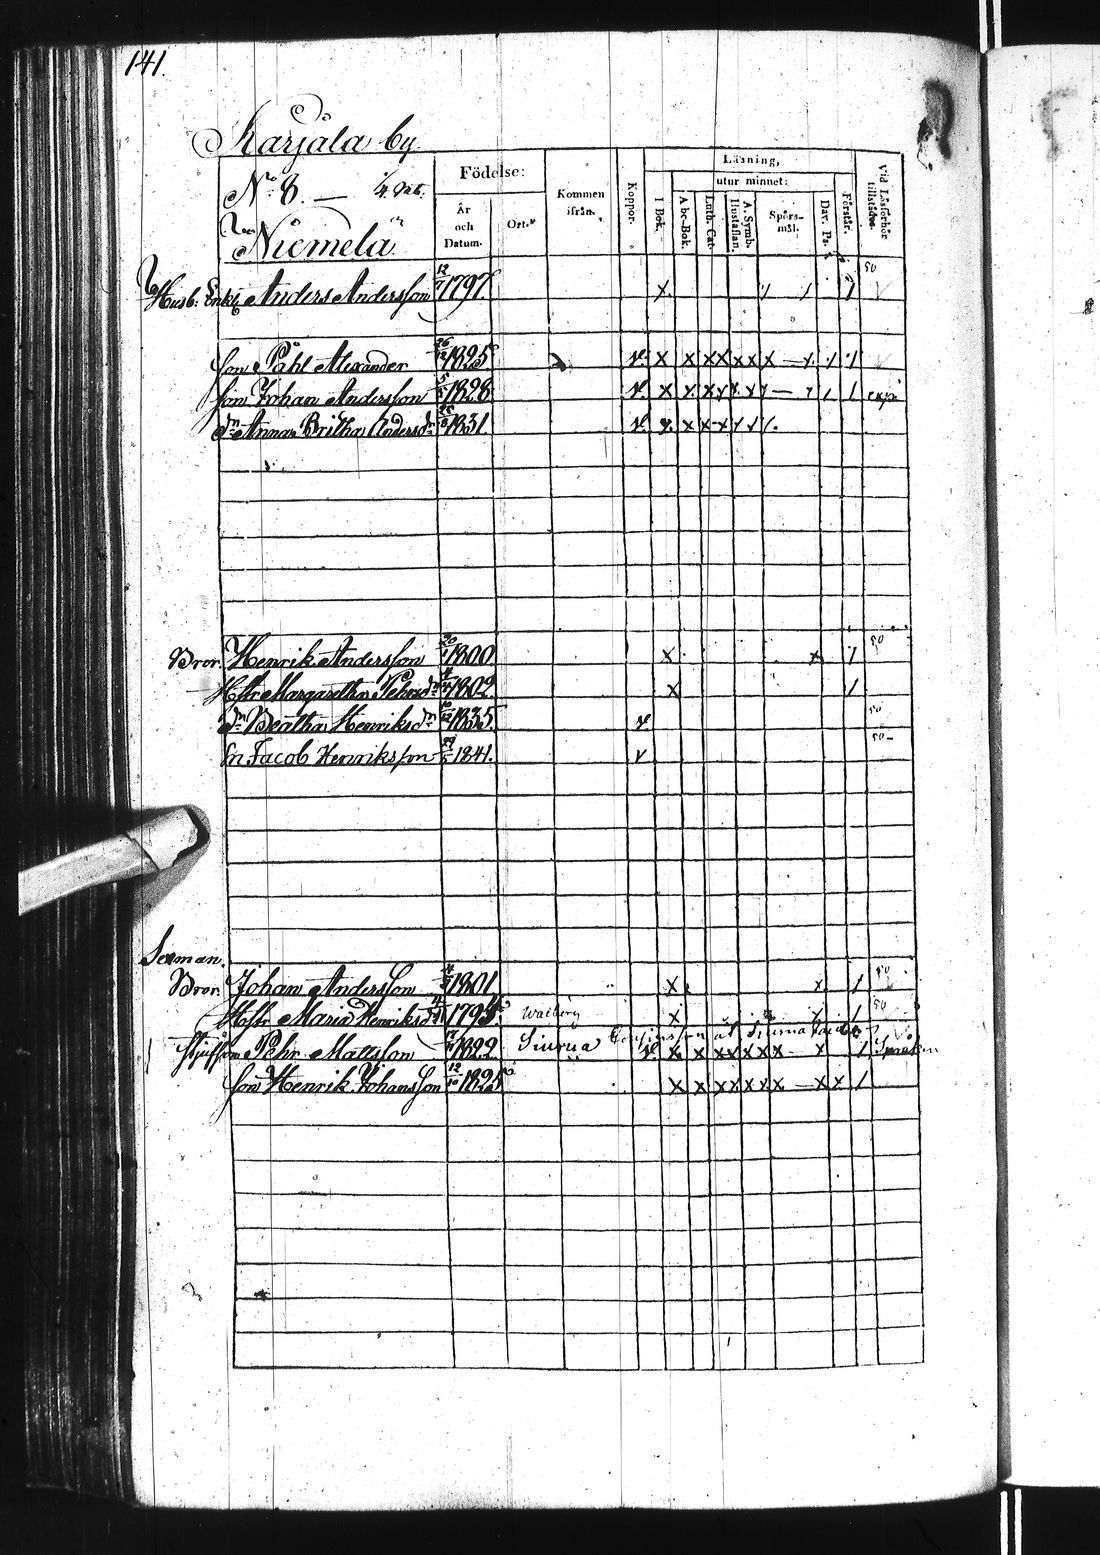 141
Karjala by
No 8. — 1/4 mtl.
Niemelä
Födelse:
År och Datum.
Ort.
Kommen ifrån.
Koppor.
Läsning,
utur minnet:
I Bok.
Abc-Bok.
Luth. Cat.
Hustaflan.
A. Symb.
Spörs-mål.
Dav. Ps.
Förstår.
Vid Läsförhör tillstädes.
Husb. Enkl. Anders Andersson 12/7 1797. x 50
son Påhl Alexander 26/12 1825 v x x x x x x x — x
son Johan Andersson 1828 v x x x x x x —
dn Anna Britha Andersdn 25/8 1831 v x x x x
Bror. Henrik Andersson 20/1 1800 x x 1 50
Hstr Margaretha Pehrsdn 1802. x 1
dn Beatha Henriksdn 10/12 1835. v 50
Sn Jacob Henriksson 29/5 1841. v 50
Sexman.
Bror. Johan Andersson 1801 x x 1 50
Hstr Maria Henriksd 1795 x 1 50
Styfson Pehr Mattsson 1822 Siurua v x x x x x x x x 1
son Henrik Johansson 12/10 1825 x x x x x x x — x x 1